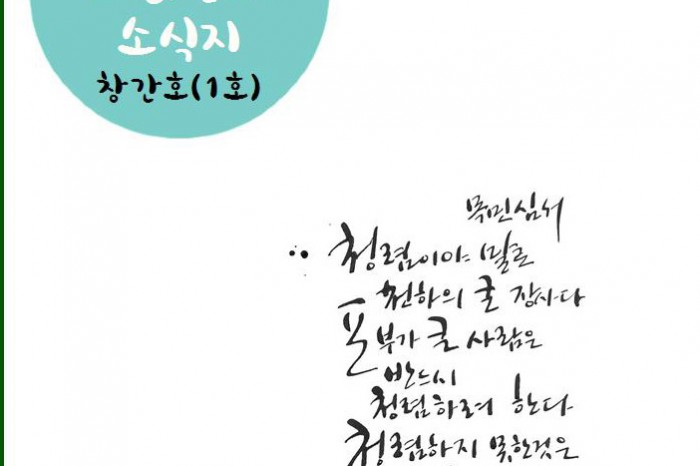 소식지
창간호(1호)
목민심서
청렴이야 말로
천하의 큰 장사다
포부가 큰 사람은
반드시
청렴하려 한다
청렴하지 못한것은